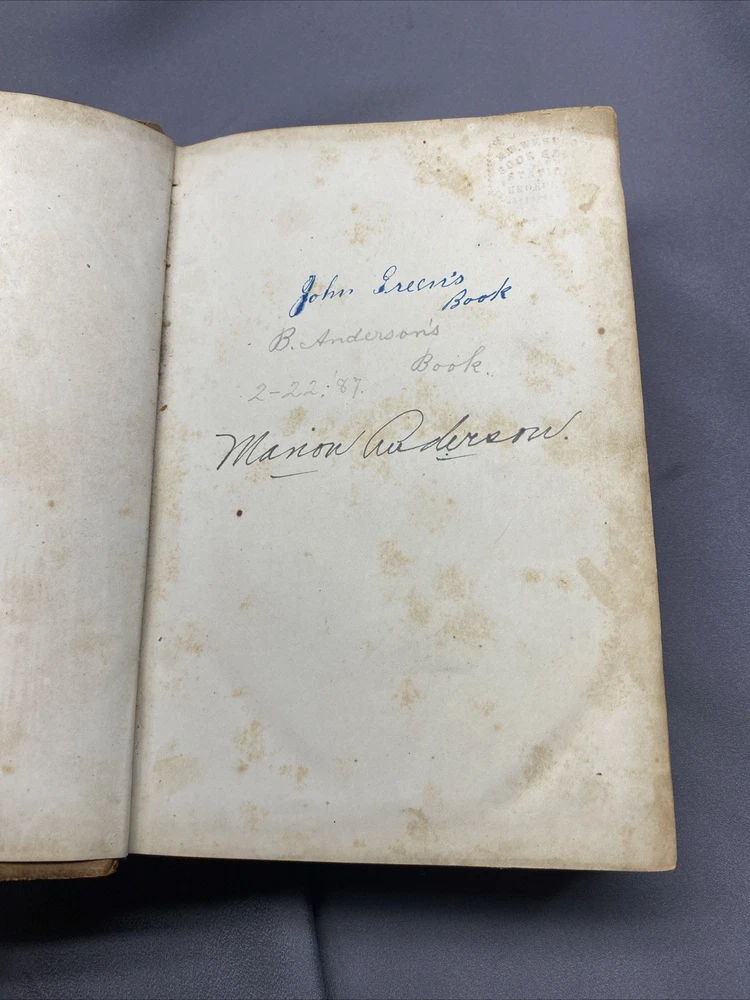 John Green's
Book
B. Anderson's
Book.
2-22,'87.
Marion Anderson.